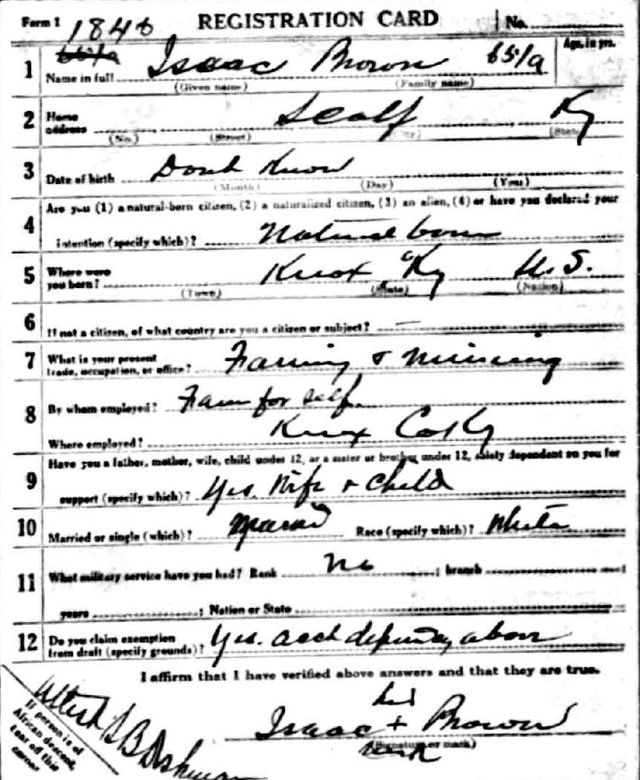 Form 1 1848 REGISTRATION CARD No.
1 Name in full Isaac Brown Age, in yrs.
(Given name) (Family name)
2 Home address Scalf Ky
(No.) (Street) (City) (State)
3 Date of birth Dont Know
(Month) (Day) (Year)
4 Are you (1) a natural-born citizen, (2) a naturalized citizen, (3) an alien, (4) or have you declared your
intention (specify which)? Natural born
5 Where were you born? Knox Ky U.S.
(Town) (State) (Nation)
6 If not a citizen, of what country are you a citizen or subject? —
7 What is your present trade, occupation, or office? Farming & mining
8 By whom employed? Farm for self.
Where employed? Knox Co Ky
9 Have you a father, mother, wife, child under 12, or a sister or brother under 12, solely dependent on you for
support (specify which)? Yes. Wife & Child
10 Married or single (which)? Married Race (specify which)? White
11 What military service have you had? Rank No ; branch
years ; Nation or State
12 Do you claim exemption from draft (specify grounds)? Yes. acct dependency above
I affirm that I have verified above answers and that they are true.
his
Isaac + Brown
(Signature or mark)
mark
If person is of African descent, tear off this corner.
Attest